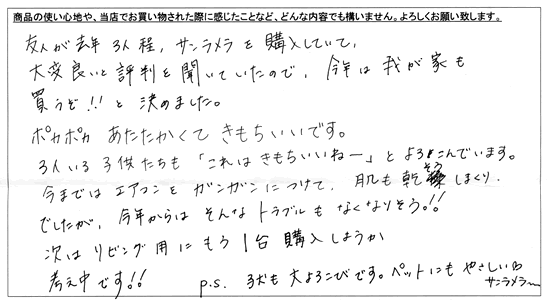 商品の使い心地や、当店でお買い物された際に感じたことなど、どんな内容でも構いません。よろしくお願い致します。
友人が去年3人程，サンラメラを購入していて，
大変良いと評判を聞いていたので，今年は我が家も
買うぞ!!と決めました。
ポカポカ あたたかくて きもちいいです。
3人いる子供たちも「これはきもちいいねー」とよろこんでいます。
今まではエアコンをガンガンにつけて，肌も乾そうしまくり
でしたが，今年からはそんなトラブルもなくなりそう!!
次はリビング用にもう1台購入しようか
考え中です!!
p.s. 犬も大よろこびです。ペットにもやさしい
サンラメラ〜